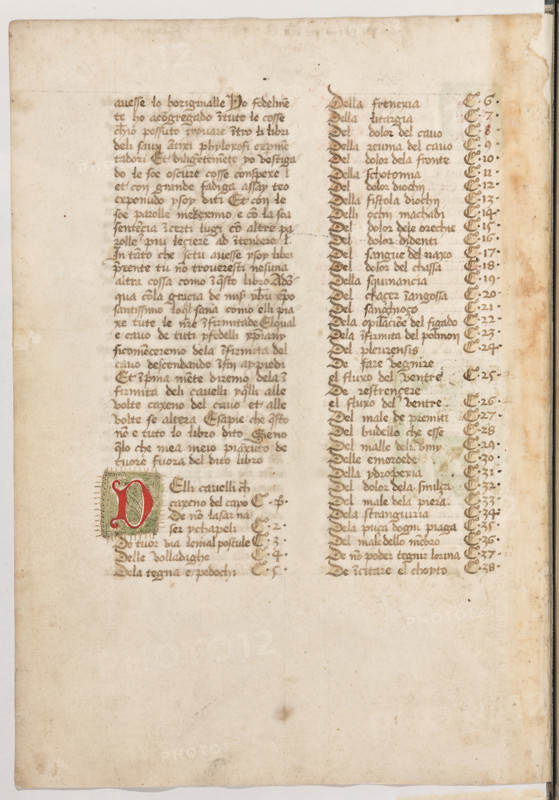 auesse lo horiginalle Yo fedelmē
te ho acōgregado ītute le cosse
chio possuto trouare ītro li libri
deli sauy Antixi phyloxofi experimē
tadori Et diligētemēte yo vestiga
do le soe oscure cosse conspexe l
et con grande fadiga assay teo
exponudo ysoy diti Et con le
soe parolle medexime e cō la soa
sentēcia īcerti lugi cō altre pa
rolle piu legiere ad ītendere l
In tāto che sctu auesse ysoy libri
p̄xente tu nō trouaresti nesuna
altra cossa como ī q̄sto libro Adō
qua cōla gracia de
santissimo
xe tute le nr̄e īfirmitade El qual
e cauo de tuti ysedelli
si comēceremo dela īfirmita del
cauo descendando īfin aypiedi
Et īp̄ma mēte diremo dela ī
firmita deli cauelli yq̄lli alle
volte caxeno del cauo et alle
volte se altera E sapie che q̄sto
nō e tuto lo libro dito Sieno
q̄llo che mea meio piaxuto de
tuore fuora del dito libro
Delli cauelli ch̄
caxeno del capo C. p̄.
De nō lasar na
ser ychapeli C. 2.
De tuor via le mal postule C. 3.
Delle volladaghe C. 4.
Dela tegna e pedochi C. 5.
Della frenexia C. 6.
Della litargia C. 7.
Del dolor del cauo C. 8.
Della reuma del cauo C. 9.
Del dolor dela fronte C. 10.
Della schotomia C. 11.
Del dolor diochi C. 12.
Della fistola diochi C. 13.
Delli ochi machadi C. 14.
Del dolor dele orechie C. 15.
Del dolor didenti C. 16.
Del sangue del naxo C. 17.
Del dolor del chassa C. 18.
Della squinancia C. 19.
Del chaçer zangossa C. 20.
Del sanghioço C. 21.
Dela opilaciōe del figado C. 22.
Dela īfirmita del polmon C. 23.
Del pleurensis C. 24.
De fare vegnire
el fluxo del ventre C. 25.
De restrençere
el fluxo del ventre C. 26.
Del male de premiti C. 27.
Del budello che esse C. 28.
Del malle deli C. 29.
Delle emoroede C. 30.
Della ydropexia C. 31.
Del dolor dela smilza C. 32.
Del male dela piera C. 33.
Dela stranguria C. 34.
Dela piaga dogni piaga C. 35.
Del male dello mēbro C. 36.
De nō poder tegnir lorina C. 37.
De īcitare el choyto C. 38.